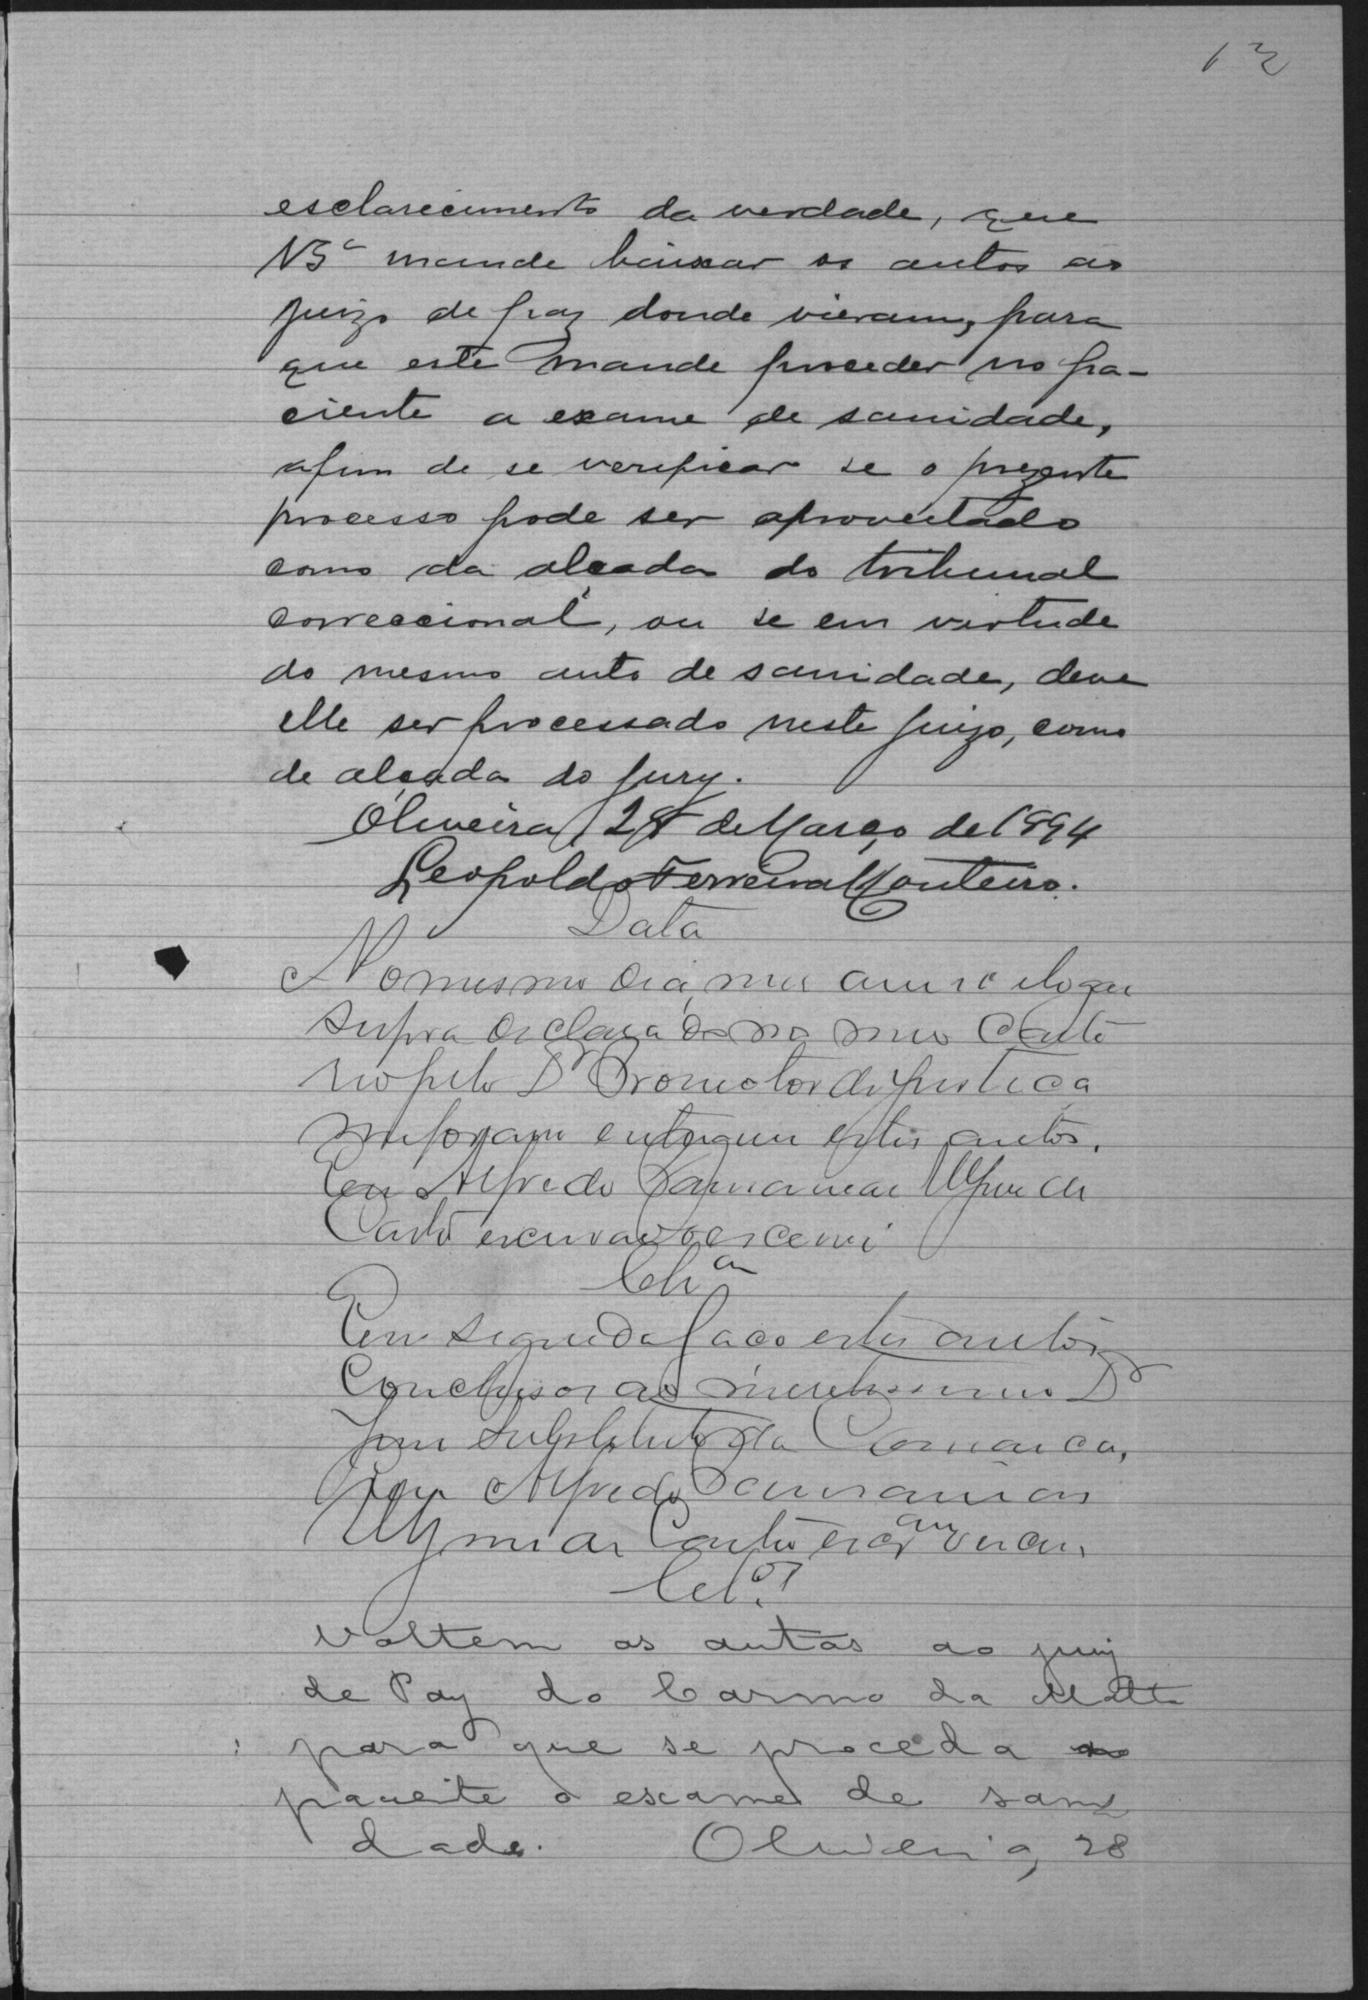 13
esclarecimento da verdade, que
VSª mande baixar os autos ao
juizo de paz donde vieram, para
que este mande proceder no pa-
ciente a exame de sanidade,
afim de se verificar se o prezente
processo pode ser aproveitado
como da alçada do tribunal
correccional, ou se em virtude
do mesmo auto de sanidade, deve
elle ser processado neste juizo, como
de alçada do jury.
Oliveira, 28 de Março de 1894
Leopoldo Ferreira Monteiro.
Data
No mesmo dia, mes anno e logar
supra declarado no meu Carto
rio pelo Dr Promotor de justiça
me foram entregues estes autos.
Eu Alfredo
Castro escrivão o escrevi
Clsam
Em seguida faço estes autos
Conclusos ao meretissimo Dr
Juiz Substituto da Comarca,
Eu Alfredo
Castro
Clos
Voltem os autos ao juiz
de Paz do Carmo da Matta
para que se proceda no
paciente o exame de sani
dade. Oliveira, 28